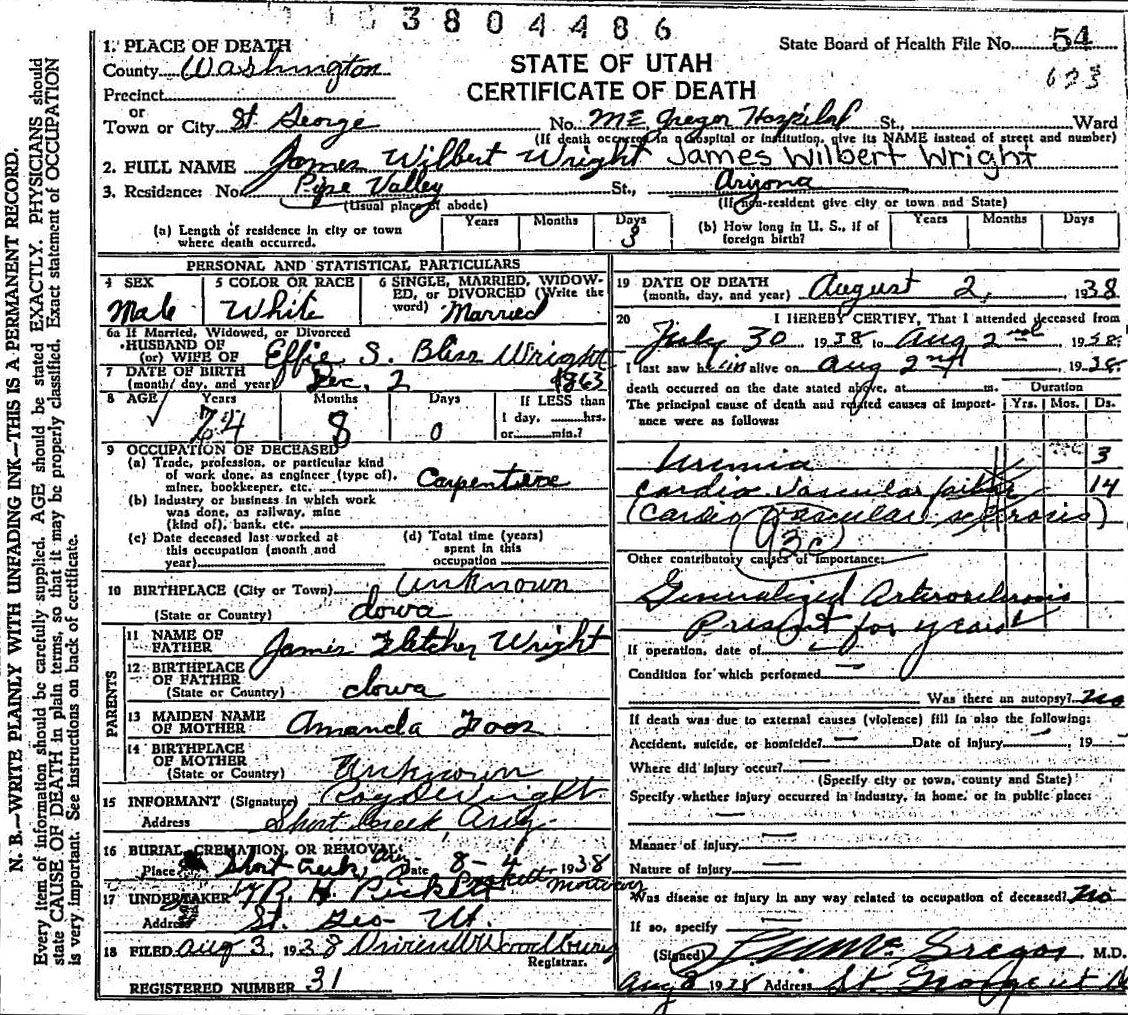 3804486
State Board of Health File No. 54
623
STATE OF UTAH
CERTIFICATE OF DEATH
1. PLACE OF DEATH
County Washington
Precinct
or
Town or City St George No. McGregor Hospital St., Ward
(If death occurred in a hospital or institution, give its NAME instead of street and number)
2. FULL NAME James Wilbert Wright James Wilbert Wright
3. Residence: No. Pipe Valley St., Arizona
(Usual place of abode) (If non-resident give city or town and State)
(a) Length of residence in city or town where death occurred. Years Months Days 3
(b) How long in U. S., if of foreign birth? Years Months Days
PERSONAL AND STATISTICAL PARTICULARS
4 SEX Male
5 COLOR OR RACE White
6 SINGLE, MARRIED, WIDOWED, or DIVORCED (Write the word) Married
6a If Married, Widowed, or Divorced
HUSBAND OF
(or) WIFE OF Effie S. Bliss Wright
7 DATE OF BIRTH
(month, day, and year) Dec. 2 1863
8 AGE Years 74 Months 8 Days 0 If LESS than
1 day, hrs.
or min.?
9 OCCUPATION OF DECEASED
(a) Trade, profession, or particular kind
of work done, as engineer (type of),
miner, bookkeeper, etc. Carpentiere
(b) Industry or business in which work
was done, as railway, mine
(kind of), bank, etc.
(c) Date deceased last worked at
this occupation (month and
year)
(d) Total time (years)
spent in this
occupation
10 BIRTHPLACE (City or Town) Unknown
(State or Country) Iowa
PARENTS
11 NAME OF
FATHER James Fletcher Wright
12 BIRTHPLACE
OF FATHER
(State or Country) Iowa
13 MAIDEN NAME
OF MOTHER Amanda Foos
14 BIRTHPLACE
OF MOTHER
(State or Country) Unknown
15 INFORMANT (Signature) Roy Wright
Address Short Creek, Ariz.
16 BURIAL, CREMATION, OR REMOVAL
Place Short Creek, Ari Date 8-4 1938
17 UNDERTAKER by R. H. Pickett Pickett Mortuary
Address St. Geo Ut
18 FILED Aug 3, 1938 Woodbury
Registrar.
REGISTERED NUMBER 31
19 DATE OF DEATH
(month, day, and year) August 2, 1938
20 I HEREBY CERTIFY, That I attended deceased from
July 30 1938 to Aug 2nd 1938.
I last saw him alive on Aug 2nd 1938.
death occurred on the date stated above, at m. Duration
The principal cause of death and related causes of importance were as follows: Yrs. Mos. Ds.
Uremia 3
Cardio Vascular failure 14
(Cardio Vascular sclerosis)
(93c)
Other contributory causes of importance:
Generalized Arterosclerosis
Present for years
If operation, date of
Condition for which performed
Was there an autopsy? No
If death was due to external causes (violence) fill in also the following:
Accident, suicide, or homicide? Date of injury , 19
Where did injury occur?
(Specify city or town, county and State)
Specify whether injury occurred in industry, in home, or in public place:
Manner of injury
Nature of injury
Was disease or injury in any way related to occupation of deceased? No
If so, specify
(Signed) McGregor M.D.
Aug 2 1938 Address St. George Ut
N. B.—WRITE PLAINLY WITH UNFADING INK—THIS IS A PERMANENT RECORD.
Every item of information should be carefully supplied. AGE should be stated EXACTLY. PHYSICIANS should
state CAUSE OF DEATH in plain terms, so that it may be properly classified. Exact statement of OCCUPATION
is very important. See instructions on back of certificate.